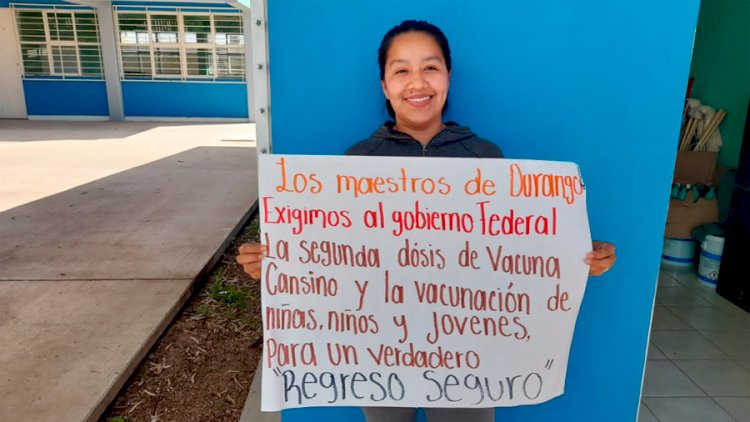 Los maestros de Durango
Exigimos al gobierno Federal
La segunda dósis de Vacuna
Cansino y la vacunación de
niñas, niños y jovenes,
para un verdadero
"Regreso Seguro"